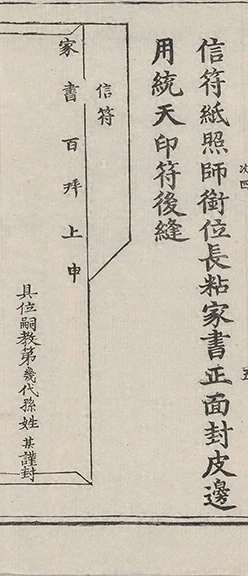 信符紙照師銜位長粘家書正面封皮邊
用統天印符後縫
信符
家書百拜上申
具位嗣教第幾代孫姓某謹封